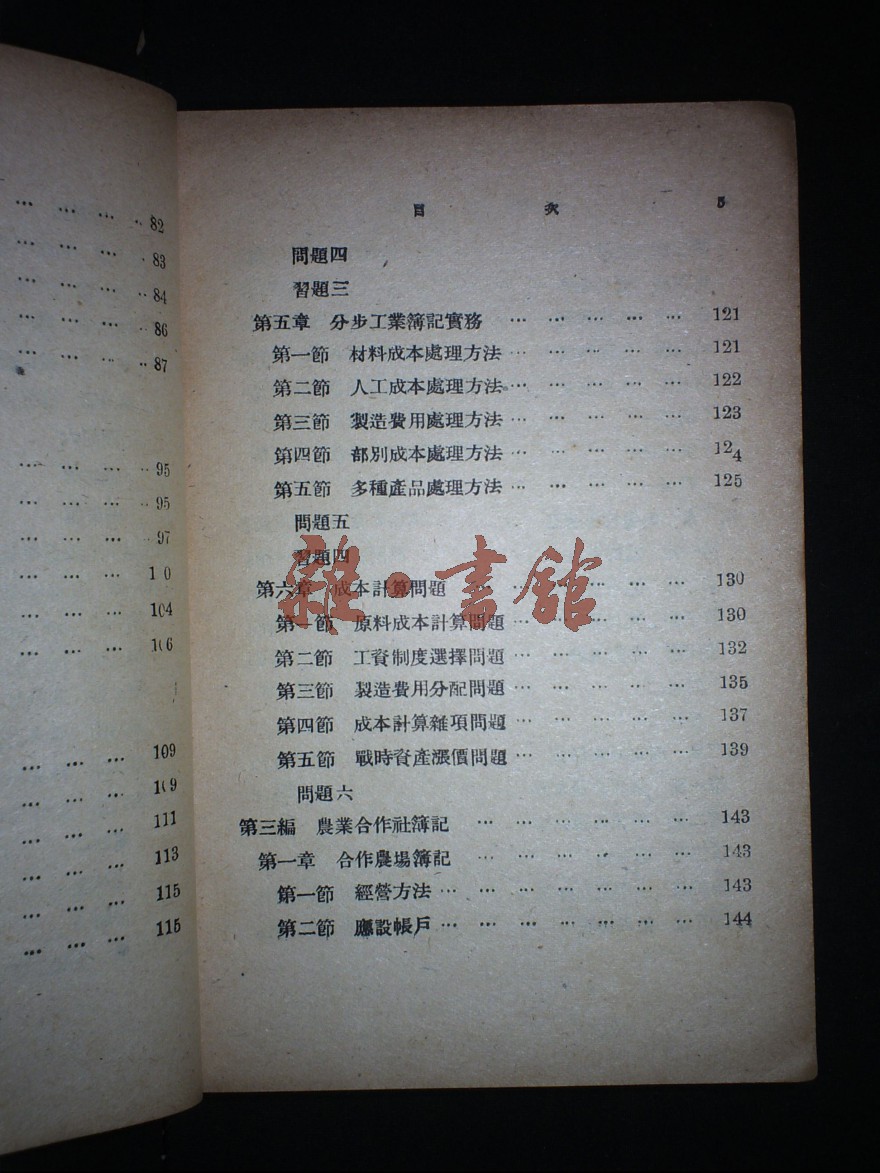 … … … ·· 82
… … … · 83
… … … · 84
… … … · 86
… … … ·· 87
… … … ·· 95
… … … ·· 95
… … … ·· 97
… … … 1 0
… … … 104
… … … 106
… … … 109
… … … 109
… … … 111
… … … 113
… … … 115
… … … 115
目 次 5
問題四
習題三
第五章 分步工業簿記實務 … … … … … 121
第一節 材料成本處理方法 … … … … … 121
第二節 人工成本處理方法 … … … … … 122
第三節 製造費用處理方法 … … … … … 123
第四節 部別成本處理方法 … … … … … 124
第五節 多種產品處理方法 … … … … … 125
問題五
習題四
第六章 成本計算問題 … … … … … … 130
第一節 原料成本計算問題 … … … … … 130
第二節 工資制度選擇問題 … … … … … 132
第三節 製造費用分配問題 … … … … … 135
第四節 成本計算雜項問題 … … … … … 137
第五節 戰時資產漲價問題 … … … … … 139
問題六
第三編 農業合作社簿記 … … … … … … 143
第一章 合作農場簿記 … … … … … … 143
第一節 經營方法 … … … … … … … 143
第二節 應設帳戶 … … … … … … … 144
雜·書館